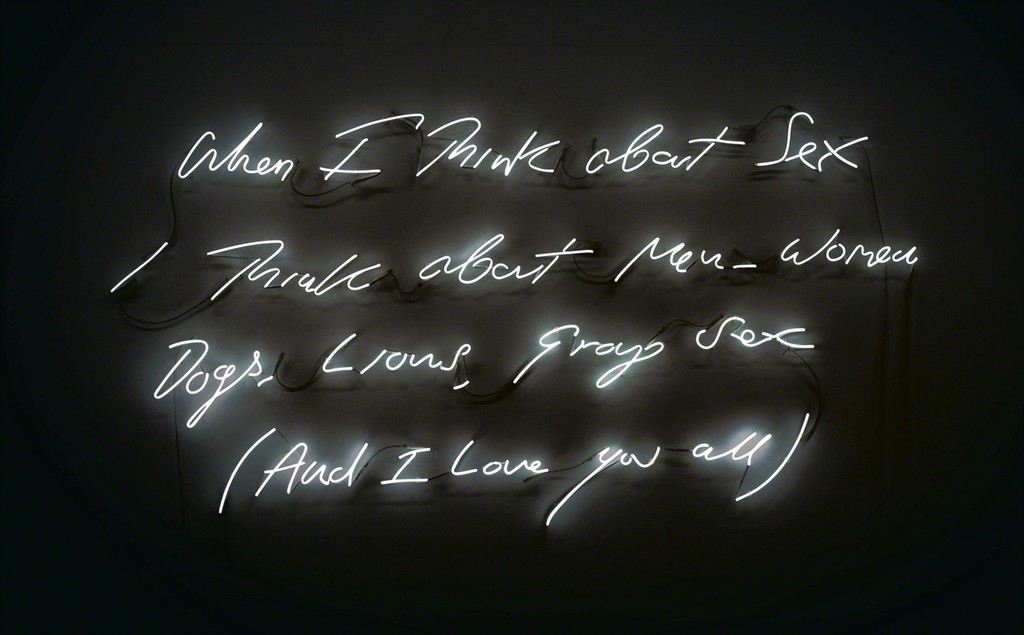 When I Think about Sex
I Think about Men_ Women
Dogs, Lions, Group Sex
(And I Love you all)